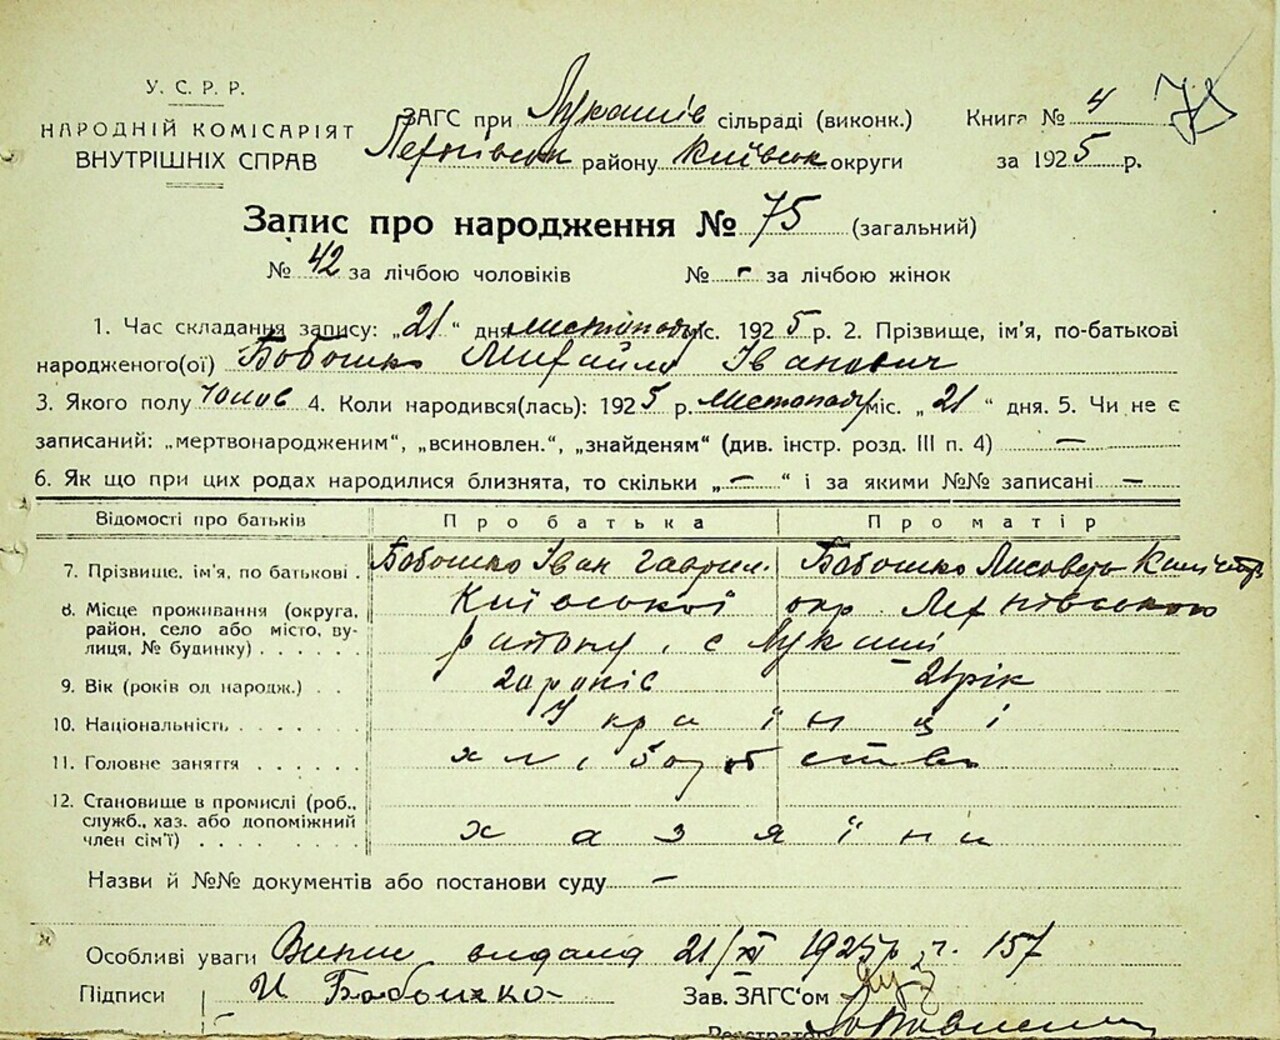 У. С. Р. Р.
НАРОДНІЙ КОМІСАРІЯТ
ВНУТРІШНІХ СПРАВ
ЗАГС при Лукашів сільраді (виконк.)
району Київськ округи
Книга № 4
за 1925 р.
Запис про народження № 75 (загальний)
№ 42 за лічбою чоловіків № - за лічбою жінок
1. Час складання запису: „21“ дня листопаду міс. 1925 р. 2. Прізвище, ім'я, по-батькові
народженого(ої) Бобошко Михайло Іванович
3. Якого полу чолов 4. Коли народився(лась): 1925 р. листопаду міс. „21“ дня. 5. Чи не є
записаний: „мертвонародженим“, „всиновлен.“, „знайденям“ (див. інстр. розд. III п. 4) —
6. Як що при цих родах народилися близнята, то скільки „—“ і за якими №№ записані —
Відомості про батьків Про батька Про матір
7. Прізвище, ім'я, по батькові . Бобошко Іван Гаврил. Бобошко Лисовета
8. Місце проживання (округа, район, село або місто, вулиця, № будинку) . . . . . . Київської окр.
району, с Лукаші
9. Вік (років од народж.) . . років 21 рік
10. Національність . . . . . . . Українці
11. Головне заняття . . . . . . хліборобство
12. Становище в промислі (роб., служб., хаз. або допоміжний член сім'ї) . . . . . . . . хазяїни
Назви й №№ документів або постанови суду —
Особливі уваги Випис видана 21/XI 1925 р ч. 157
Підписи И Бобошко
Зав. ЗАГС'ом
Реєстратор